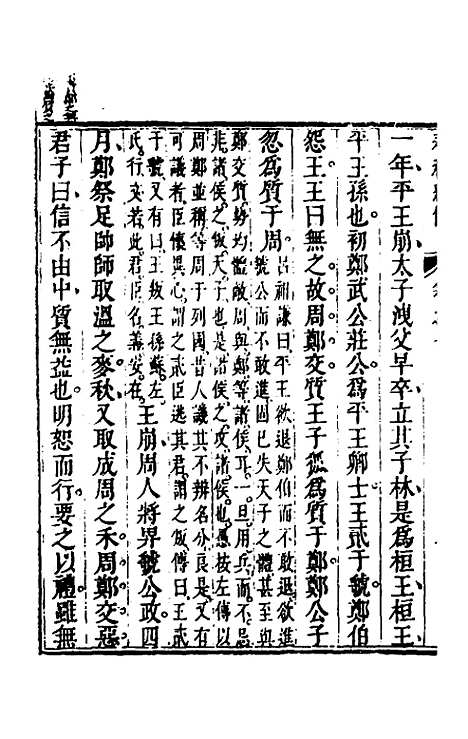 一年平王崩太子洩父早卒立其子林是為桓王桓王
平王孫也初鄭武公莊公為平王卿士王貳于虢鄭伯
怨王王曰無之故周鄭交質王子狐為質于鄭鄭公子
忽為質于周
呂祖謙曰平王欲退鄭伯而不敢退欲進
虢公而不敢進固巳失天子之體甚至與
鄭交質勢均體敵周與鄭等諸侯耳一旦用兵而不忌
非諸侯之叛天子也是諸侯之攻諸侯也愚按左傳以
周鄭並稱等周于列國昔人譏其不辨名分良是又有
可議者臣懷異心謂之貳臣逃其君謂之叛傳曰王貳
于虢又有曰王叛王孫蘇左
氏行文若此君臣名義安在
王崩周人將畀虢公政四
月鄭祭足帥師取溫之麥秋又取成周之禾周鄭交惡
君子曰信不由中質無益也明恕而行要之以禮雖無